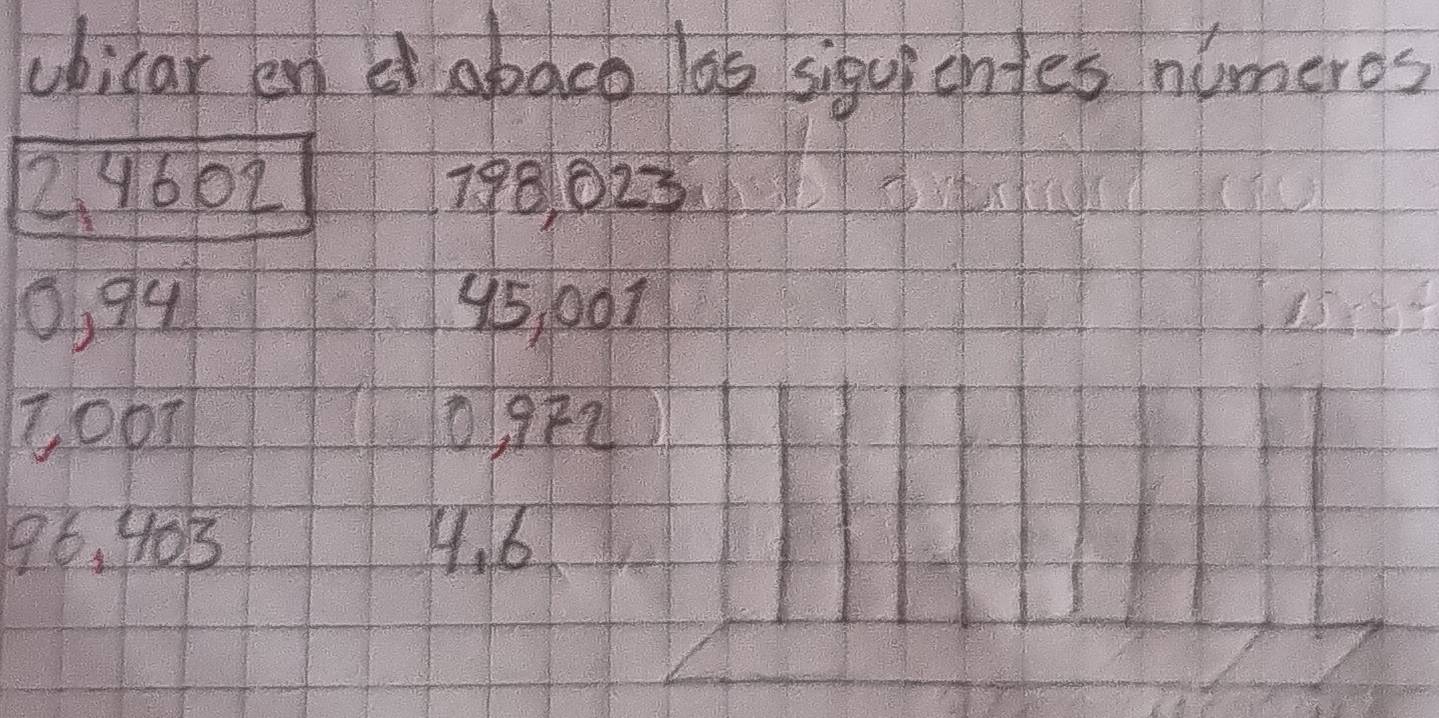 ubicar en el abaco los siguientes números
2,4602 798,023
0,94 45,001
7,001 0,972
96,403 4,6